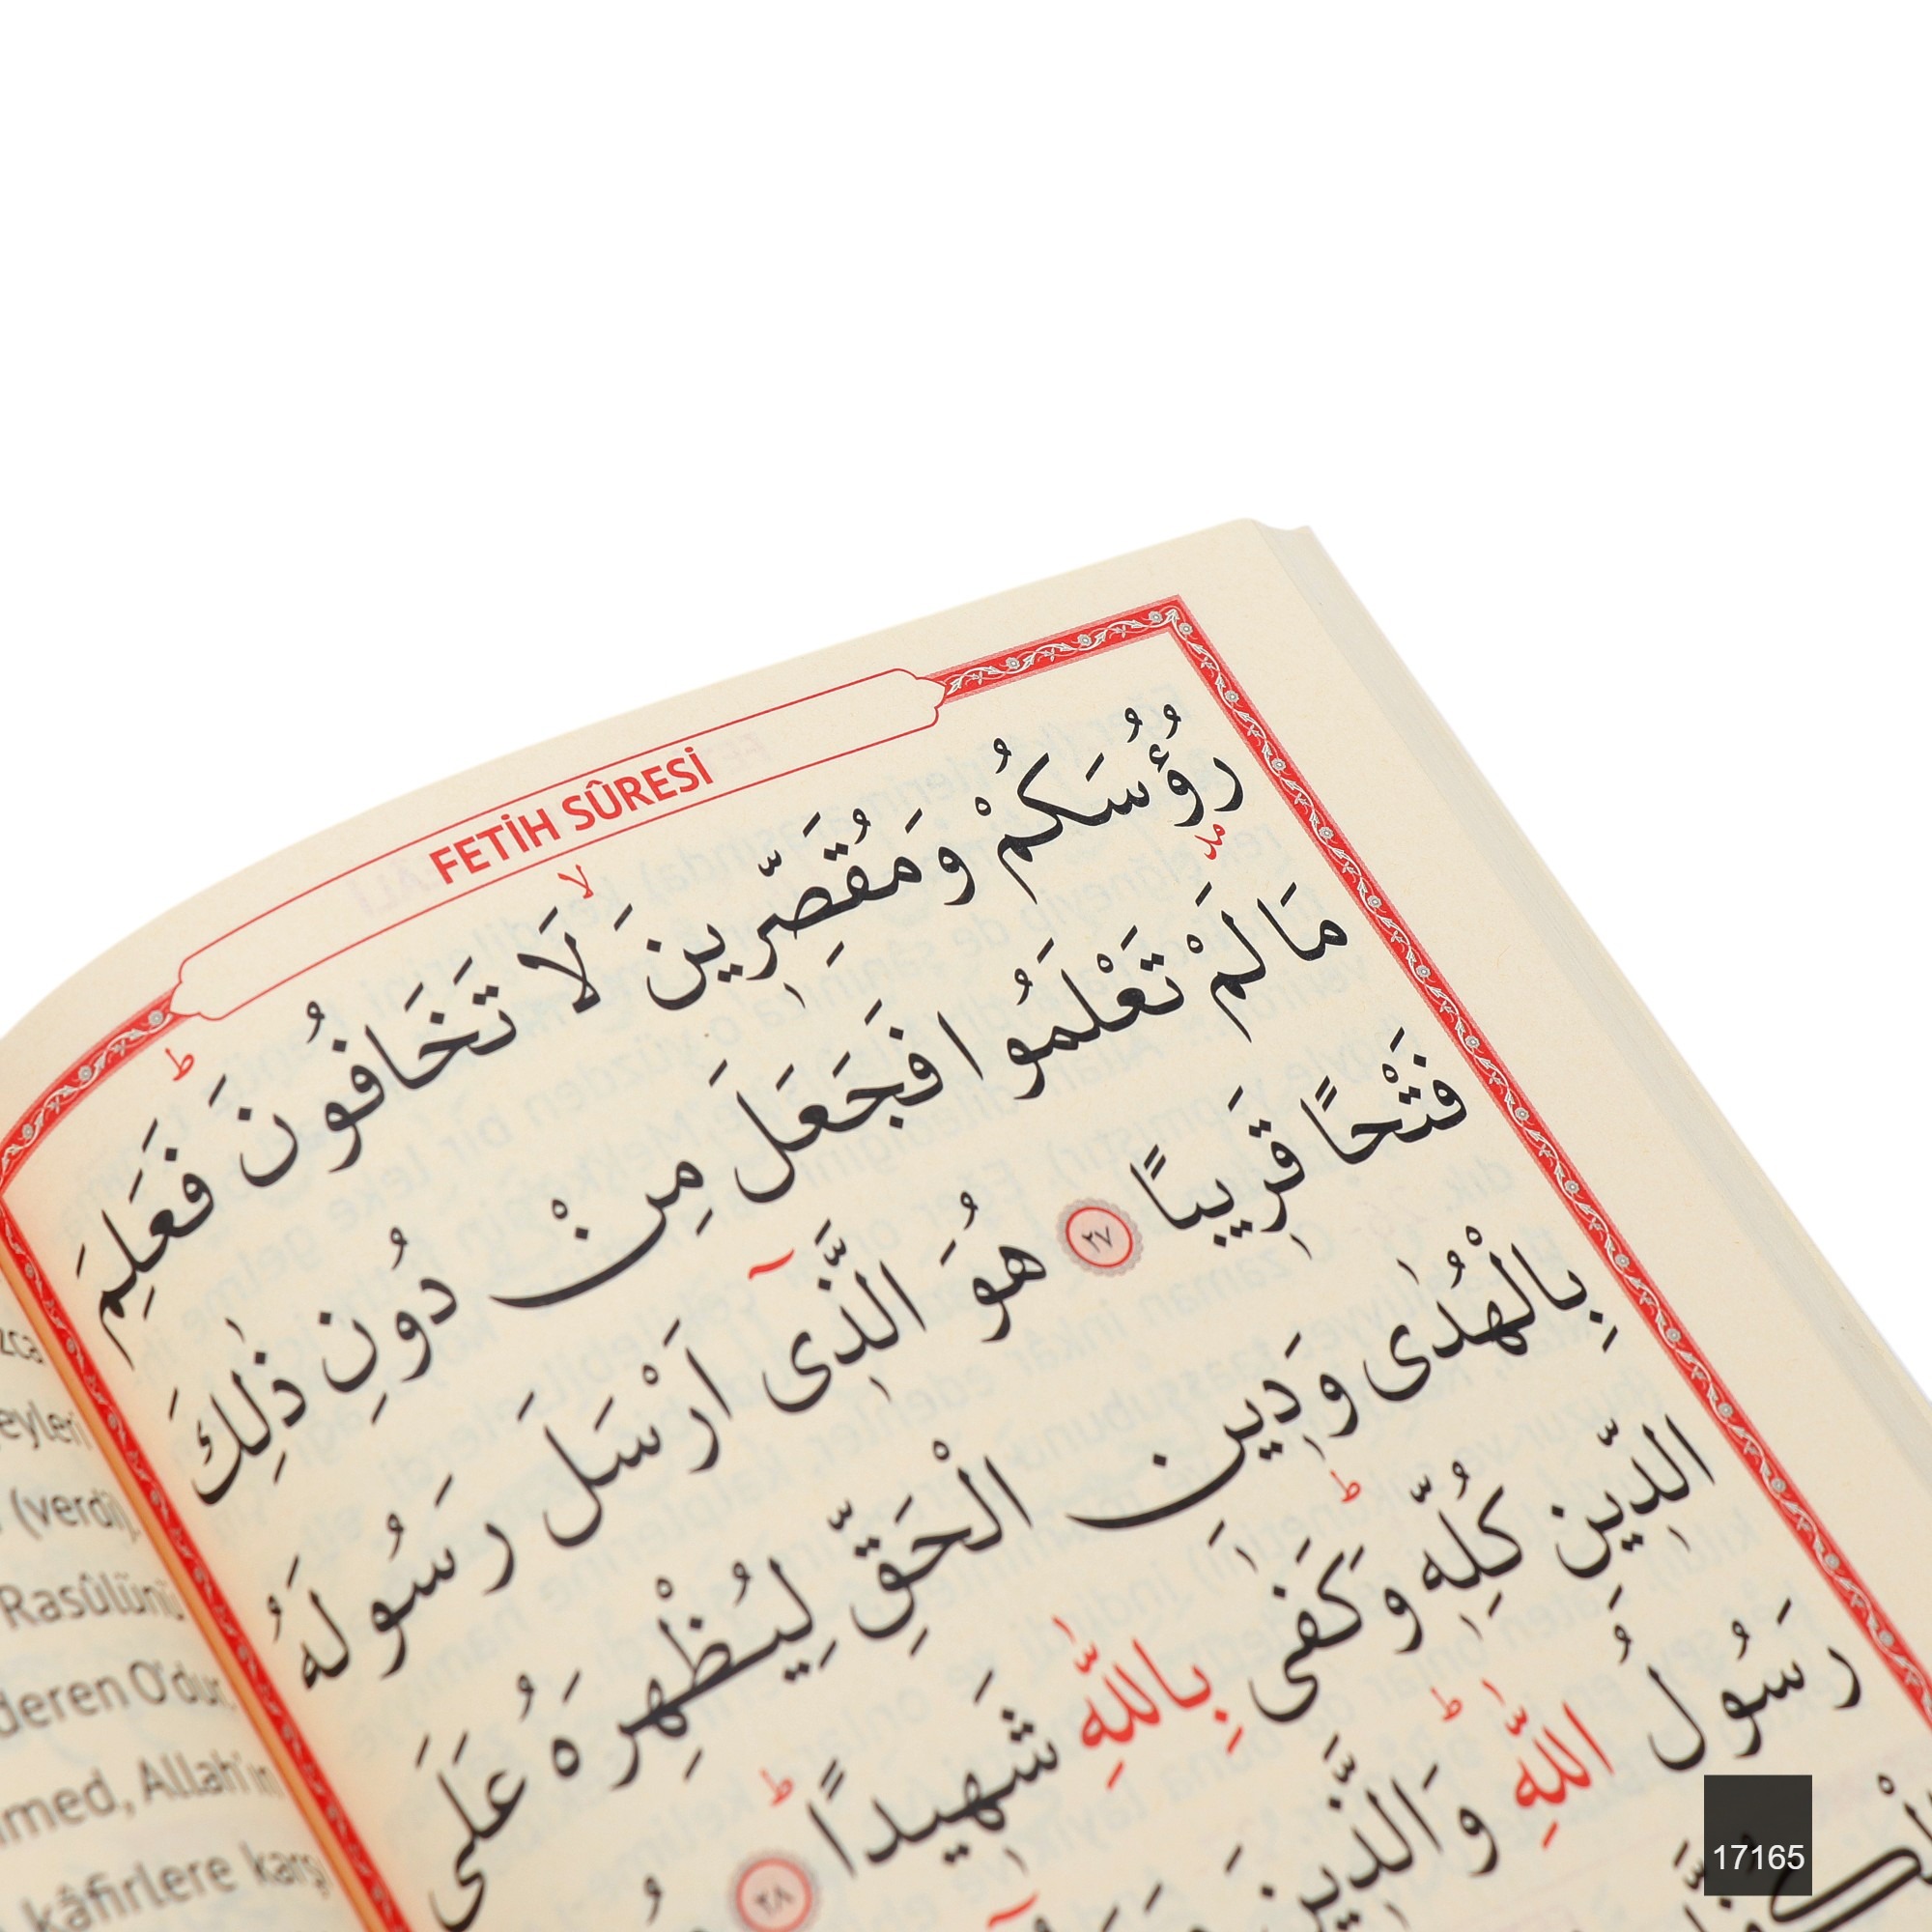 FETİH SÛRESİ
رُؤُسَكُمْ وَمُقَصِّرِينَ لَا تَخَافُونَ فَعَلِمَ
مَا لَمْ تَعْلَمُوا فَجَعَلَ مِنْ دُونِ ذٰلِكَ
فَتْحًا قَرِيبًا ٢٧ هُوَ الَّذِى اَرْسَلَ رَسُولَهُ
بِالْهُدٰى وَدِينِ الْحَقِّ لِيُظْهِرَهُ عَلَى
الدِّينِ كُلِّهِ وَكَفٰى بِاللّٰهِ شَهِيدًا ٢٨
رَسُولُ اللّٰهِ وَالَّذِينَ
eyleri
(verdi)
Rasûlünü
deren O'dur.
med, Allah'ın
kâfirlere karşı
17165